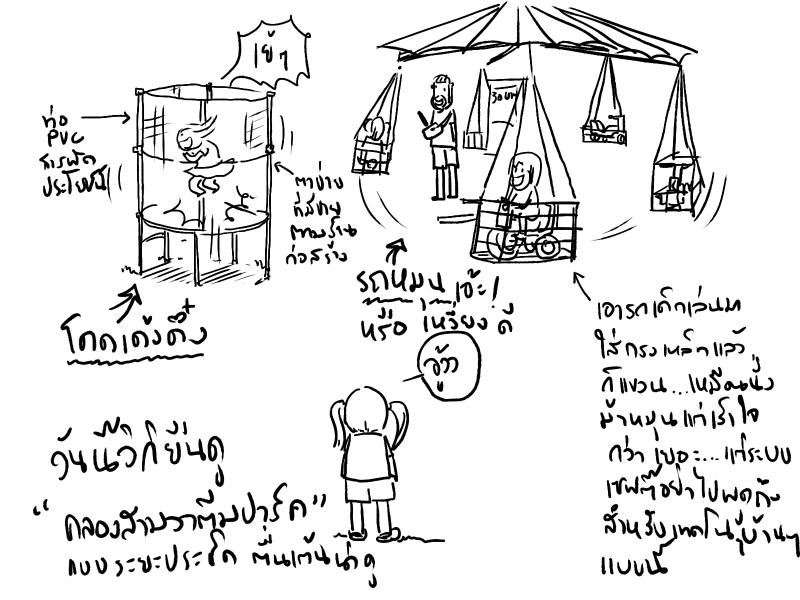 เย้ๆ
ท่อ
PVC
สารพัด
ประโยชน์
ตาข่าย
ที่มีขาย
ตามร้าน
ก่อสร้าง
โดดเด้งดึ๋ง
30 บาท
รถหมุน เอ๊ะ!
หรือ เหวี่ยง ดี
อู้วว
เอารถเด็กเล่นมา
ใส่กรงเหล็กแล้ว
ก็แขวน...เหมือนนั่ง
ม้าหมุนแต่เร้าใจ
กว่าเยอะ...แต่ระบบ
เซฟตี้อย่าไปพูดถึง
สำหรับเทคโนฯบ้านๆ
แบบนี้
วันนี้วิกิยืนดู
"คลองสามวาตีมปาร์ค"
แบบระยะประชิด ตื่นเต้นน่าดู